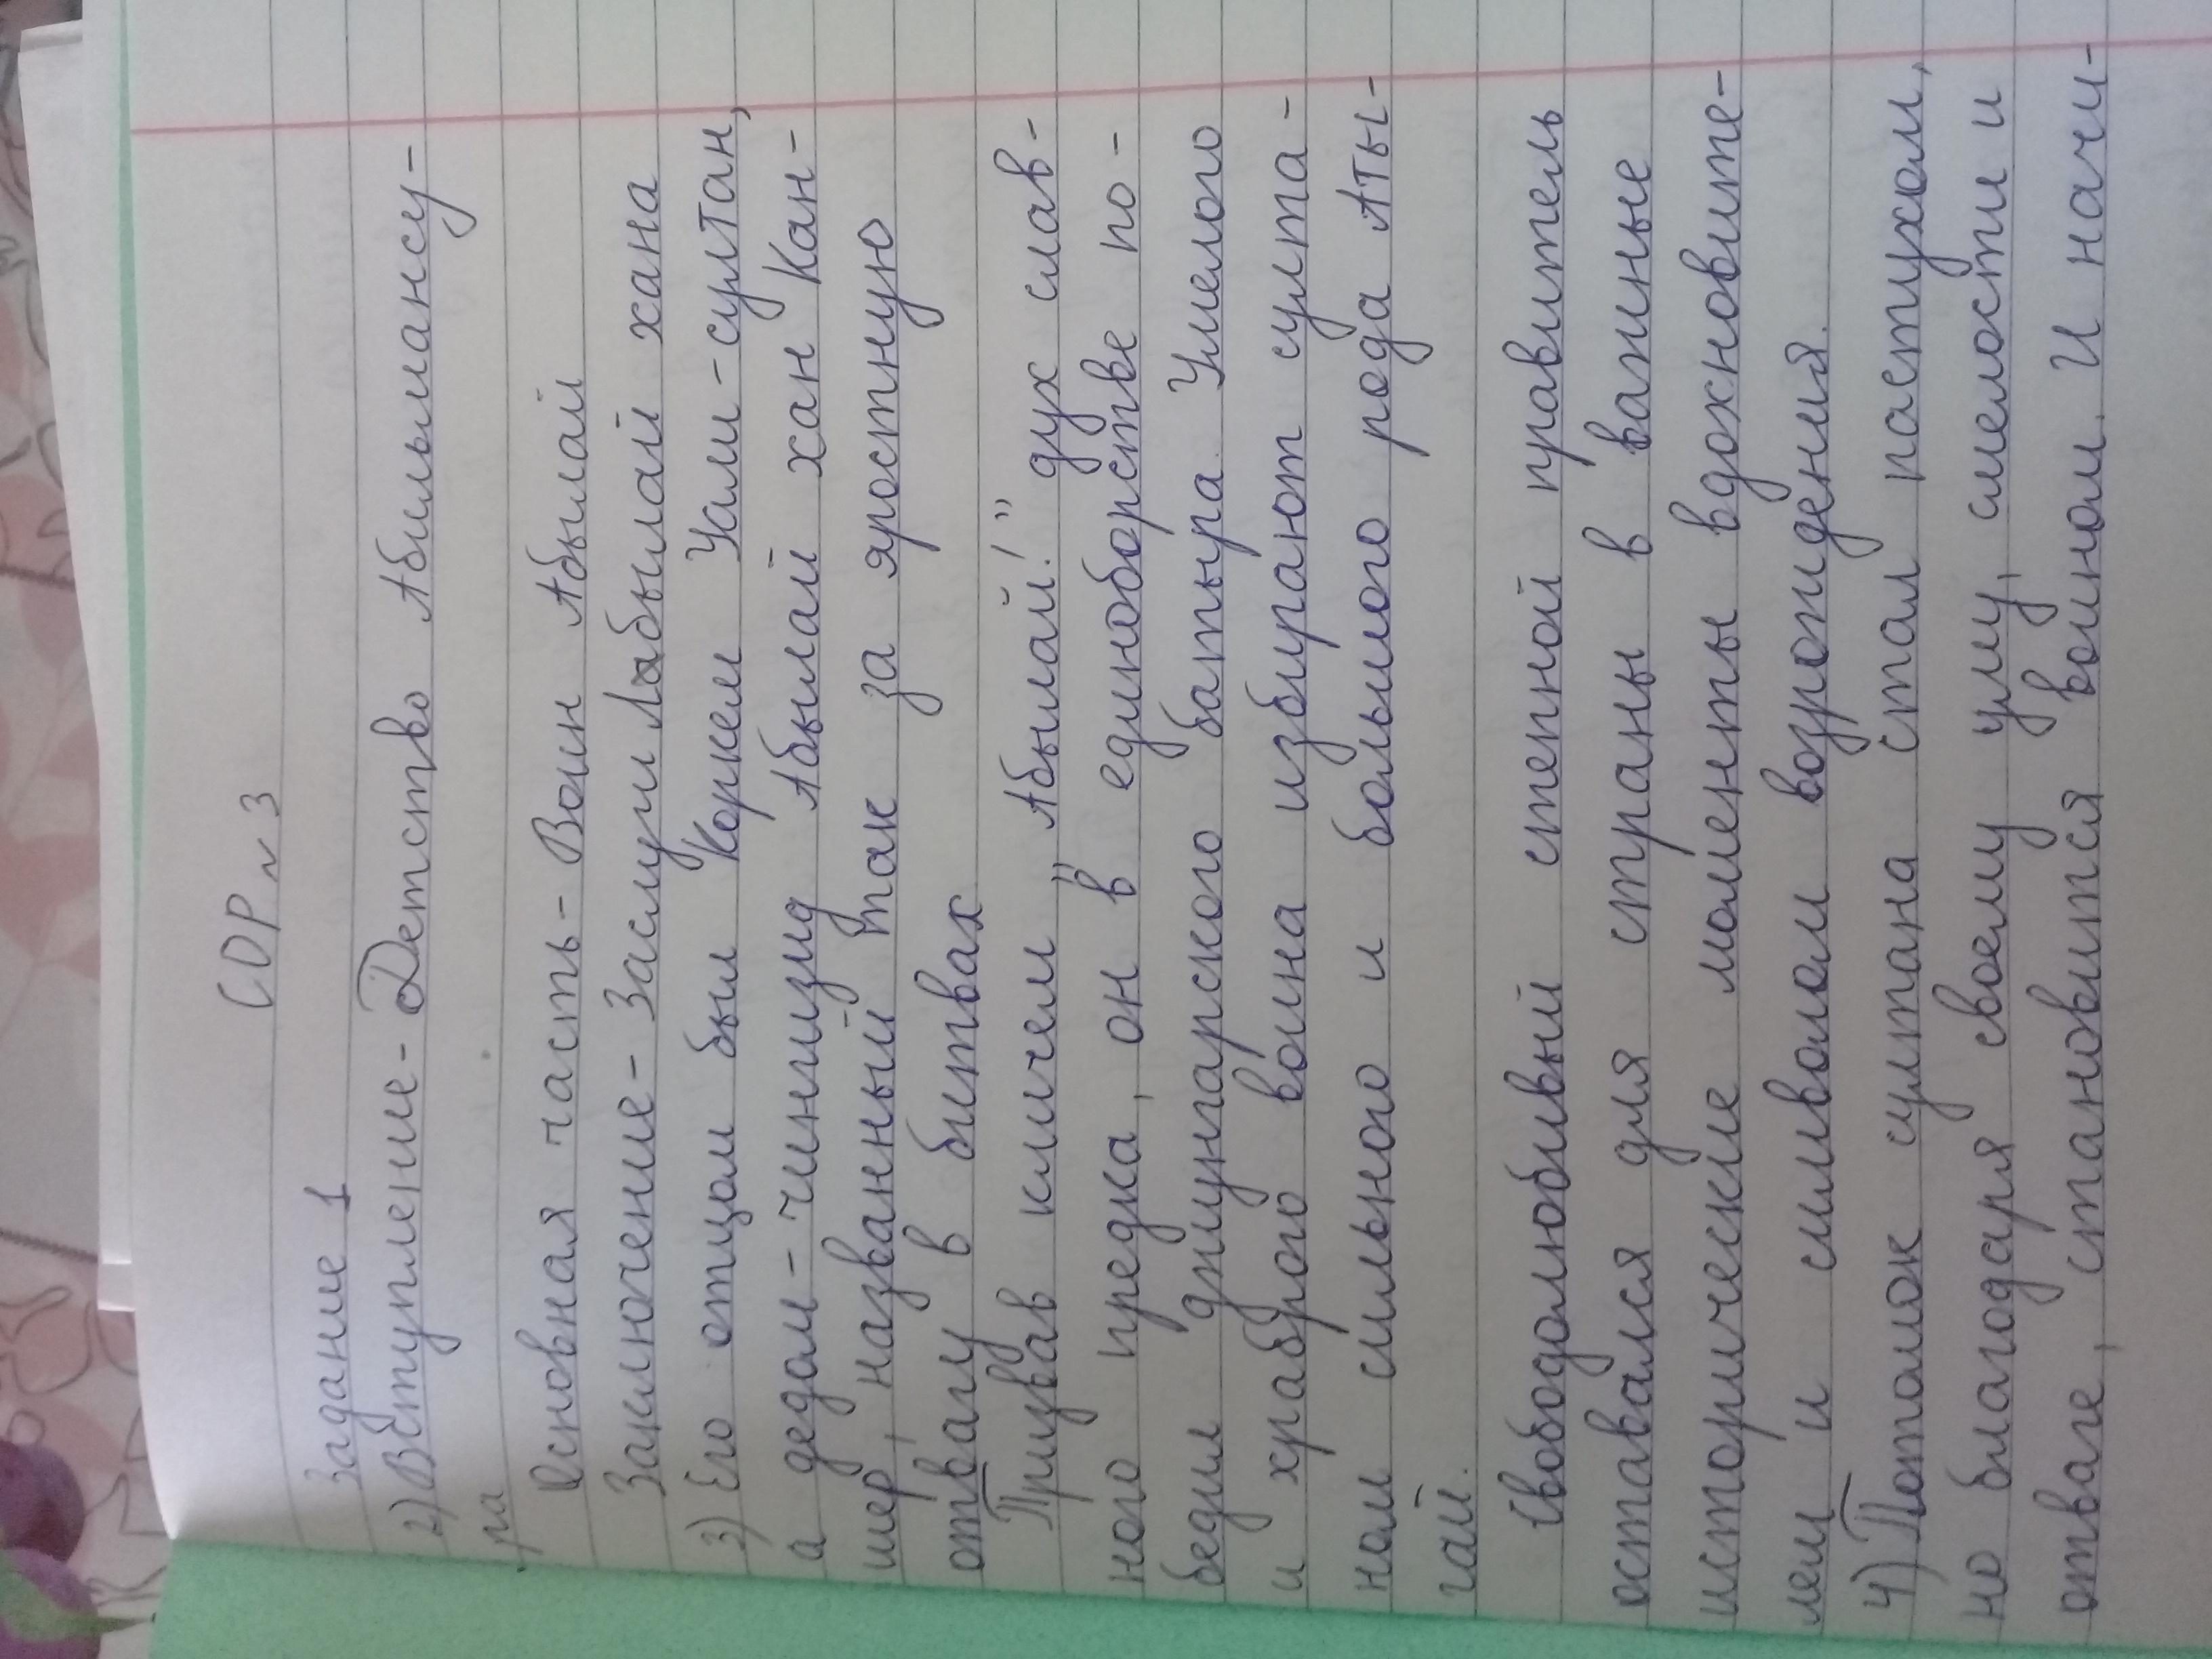 СОР №3
Задание 1
2) Вступление - Детство Абильмансу-
ра
Основная часть - Воин Абылай
Заключение - Заслуги Абылай хана
3) Его отцом был Коркем Уали-султан,
а дедом - чингизид Абылай хан Кан-
шер, названный так за яростную
отвагу в битвах
Призвав кличем „Абылай!" дух слав-
ного предка, он в единоборстве по-
бедил джунгарского батыра. Умелого
и храброго воина избирают султа-
ном сильного и большого рода Аты-
гай.
Свободолюбивый степной правитель
оставался для страны в важные
исторические моменты вдохновите-
лем и символом возрождения.
4) Потомок султана стал пастухом,
но благодаря своему уму, смелости и
отваге, становится воином. И начи-